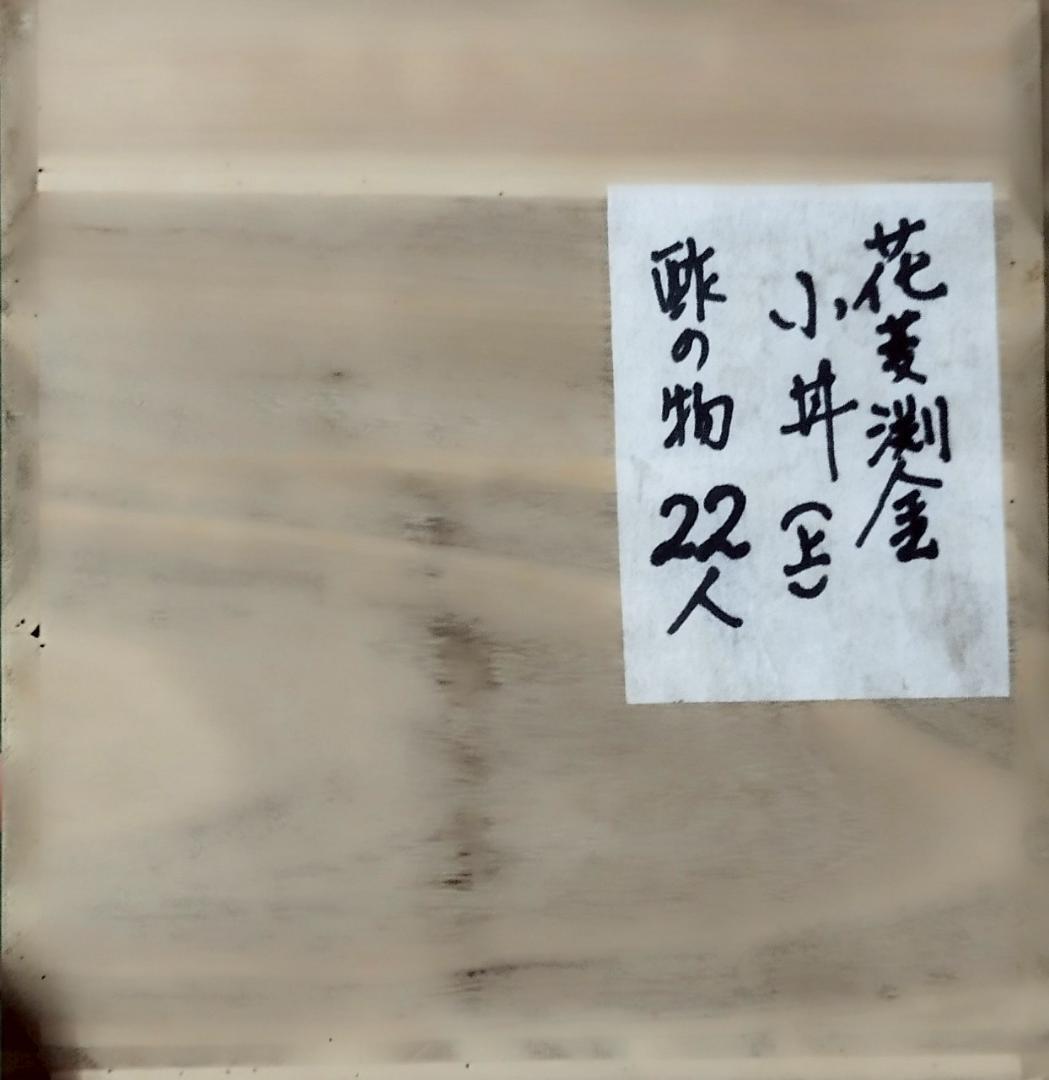 花菱渕金
小丼(上)
酢の物 22人